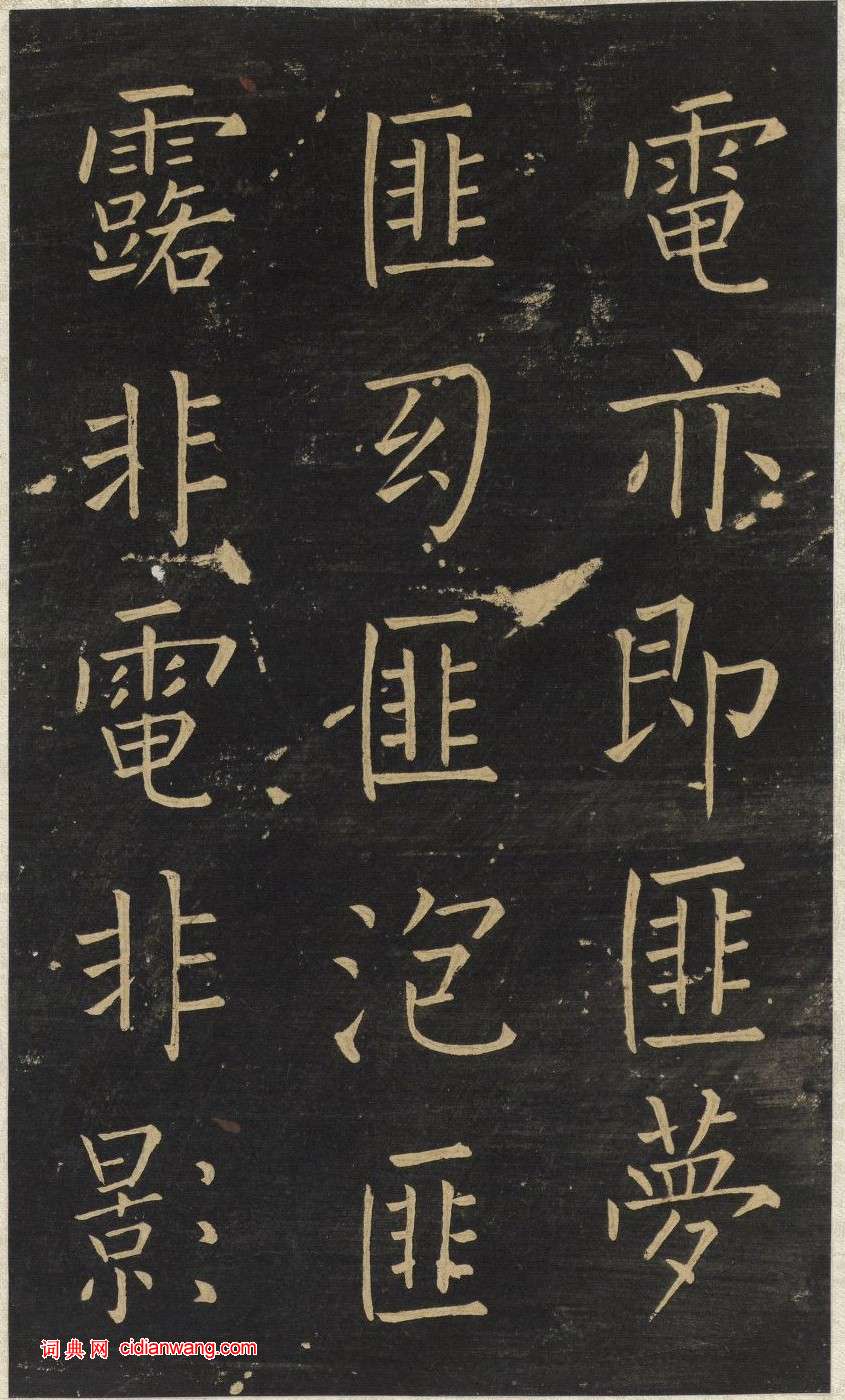 電亦即匪夢
匪幻匪泡匪
露非電非影
词典网 cidianwang.com